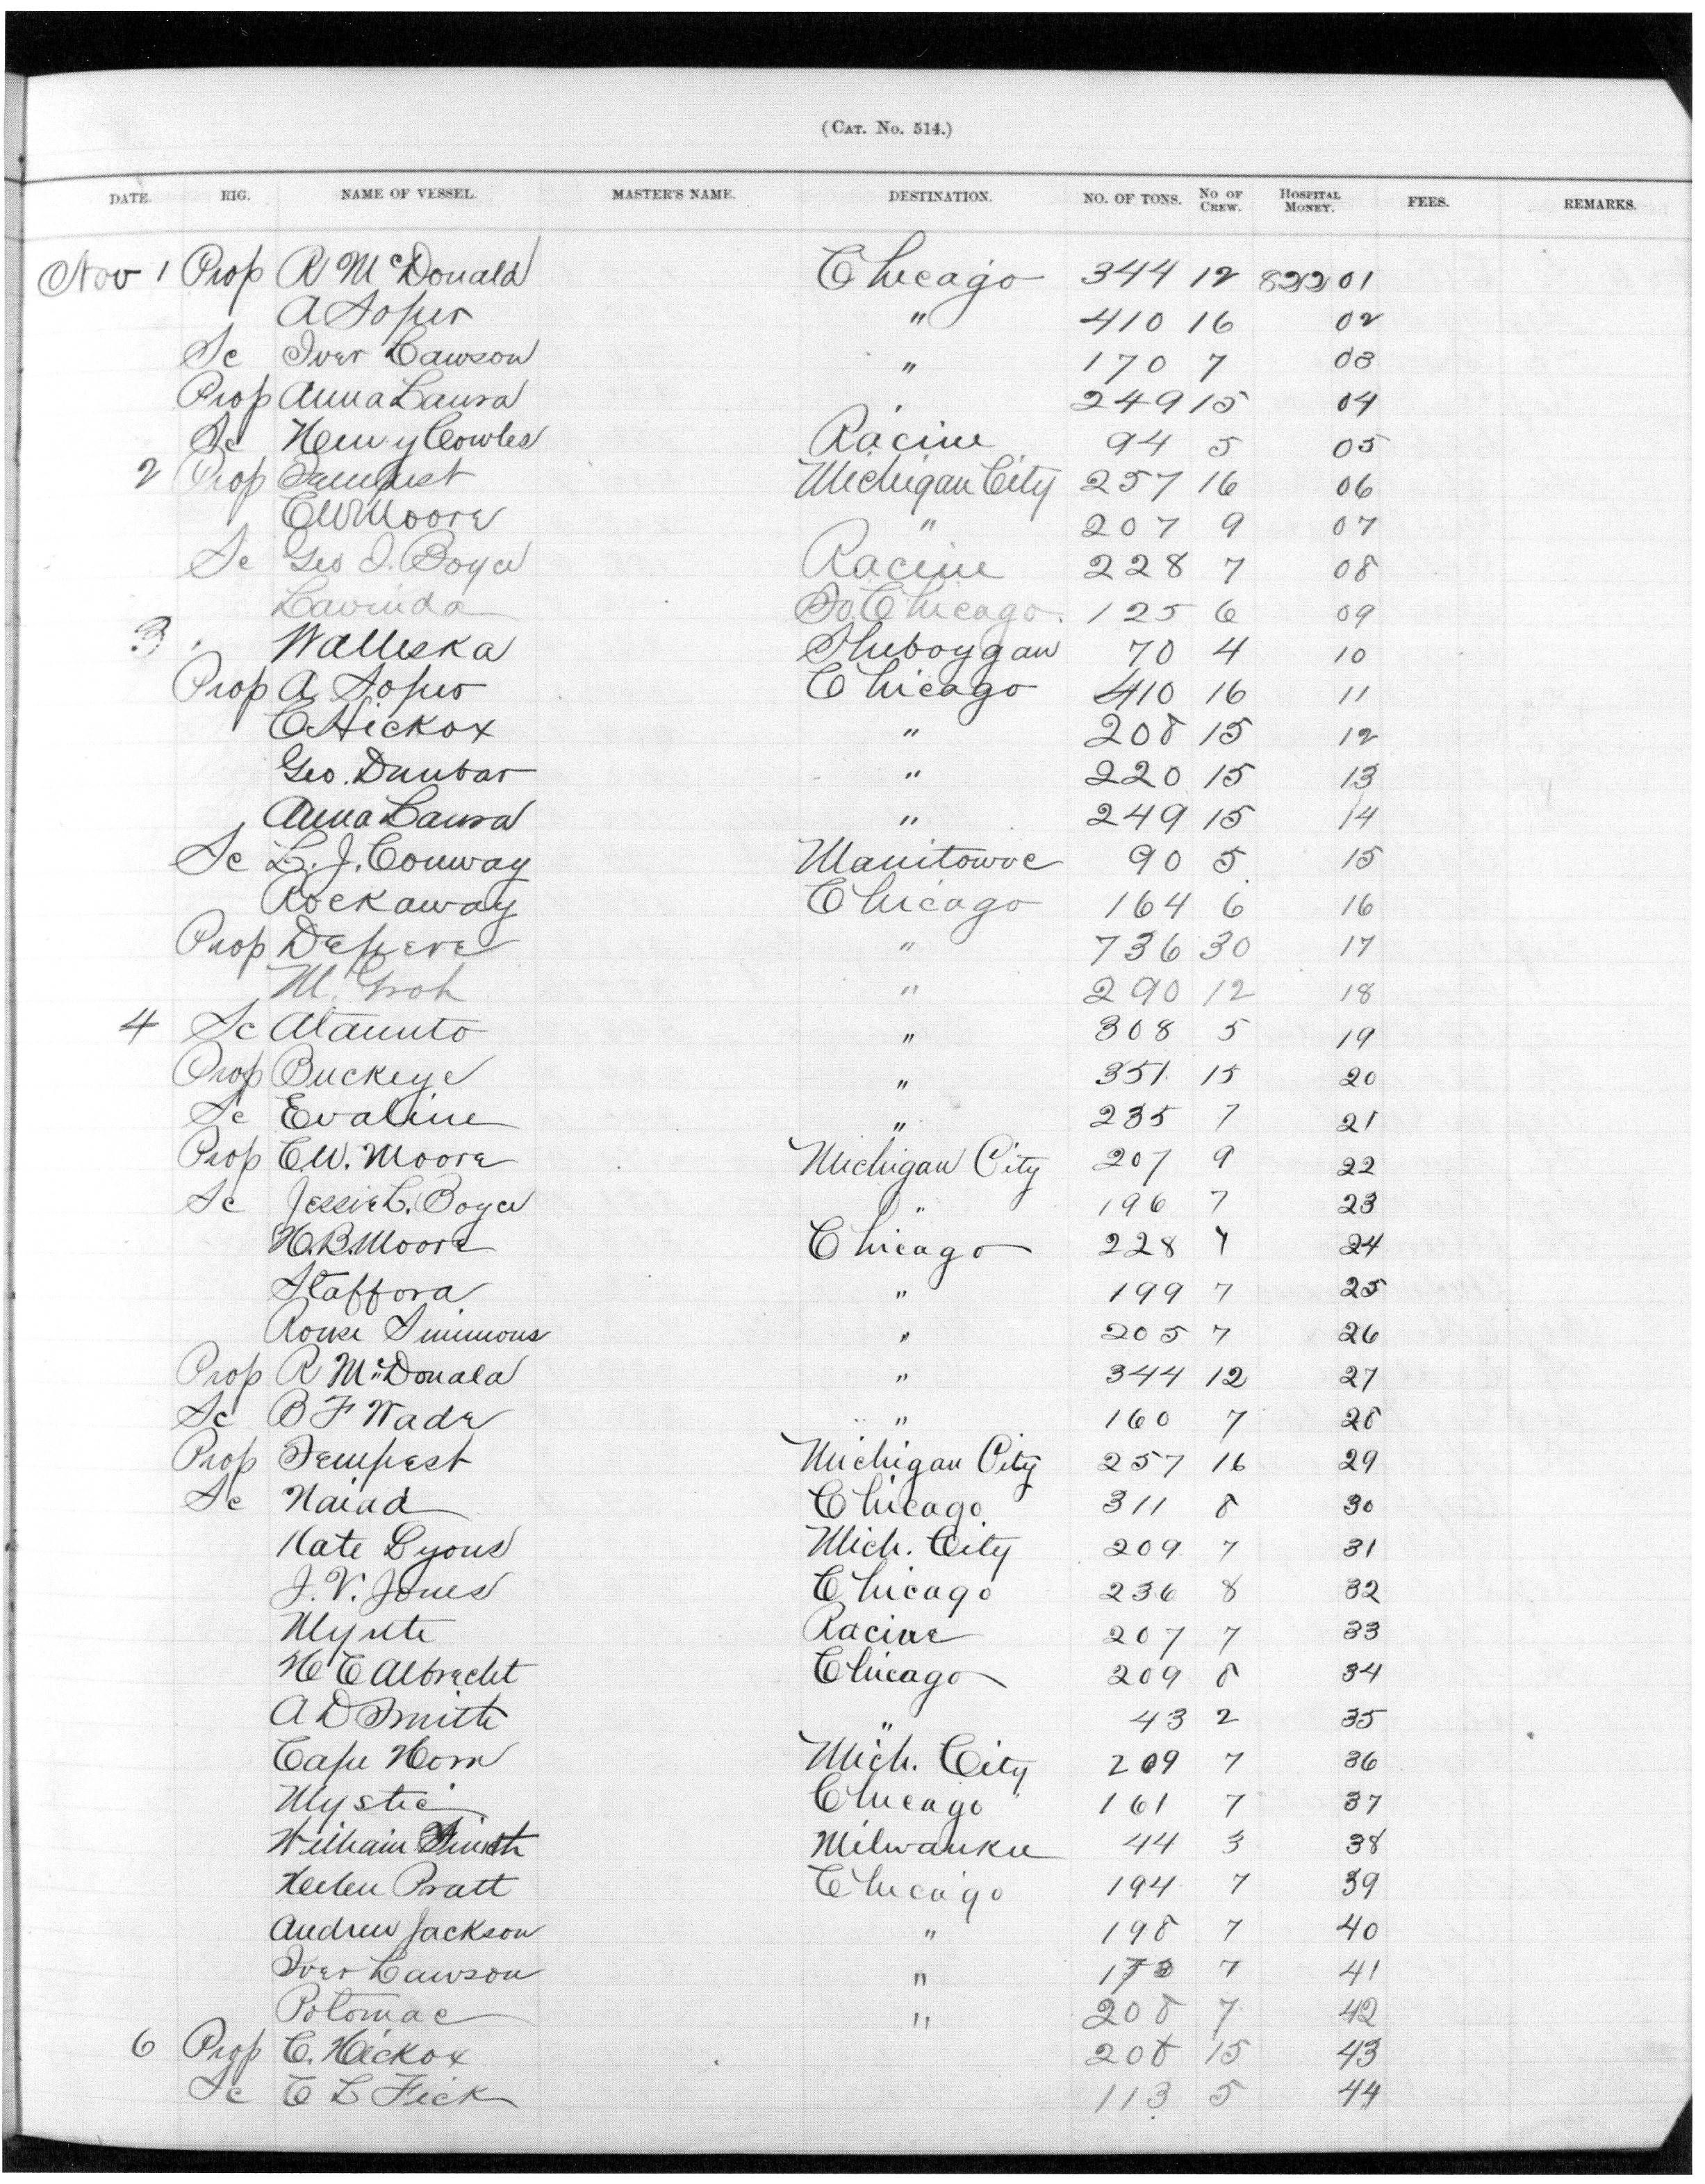 (CAT. NO. 514.)
DATE. RIG. NAME OF VESSEL. MASTER'S NAME. DESTINATION. NO. OF TONS. NO OF CREW. HOSPITAL MONEY. FEES. REMARKS.
Nov 1 Prop R McDonald Chicago 344 12 82201
A Soper " 410 16 02
Sc Iver Lawson " 170 7 03
Prop Anna Laura " 249 15 04
Sc Henry Cowles Racine 94 5 05
2 Prop Tempest Michigan City 257 16 06
C W Moore " 207 9 07
Sc Geo L. Boyce Racine 228 7 08
Lavinda So. Chicago. 125 6 09
3 Walleska Sheboygan 70 4 10
Prop A Soper Chicago 410 16 11
C Hickox " 208 15 12
Geo. Dunbar " 220 15 13
Anna Laura " 249 15 14
Sc L. J. Conway Manitowoc 90 5 15
Rockaway Chicago 164 6 16
Prop Depere " 736 30 17
M. Groh " 290 12 18
4 Sc Ataunto " 308 5 19
Prop Buckeye " 351 15 20
Sc Evaline " 235 7 21
Prop C.W. Moore Michigan City 207 9 22
Sc Jessie L. Boyce " 196 7 23
H.B. Moore Chicago 228 7 24
Stafford " 199 7 25
Rouse Simmons " 205 7 26
Prop R McDonald " 344 12 27
Sc B F Wade " 160 7 28
Prop Tempest Michigan City 257 16 29
Sc Naiad Chicago 311 8 30
Kate Lyons Mich. City 209 7 31
J. V. Jones Chicago 236 8 32
Myrtle Racine 207 7 33
H C Albrecht Chicago 209 8 34
A D Smith " 43 2 35
Cape Horn Mich. City 209 7 36
Mystic Chicago 161 7 37
William Smith Milwaukee 44 3 38
Helen Pratt Chicago 194 7 39
Andrew Jackson " 198 7 40
Iver Lawson " 170 7 41
Potomac " 208 7 42
6 Prop C. Hickox 208 15 43
Sc C L Fick 113 5 44